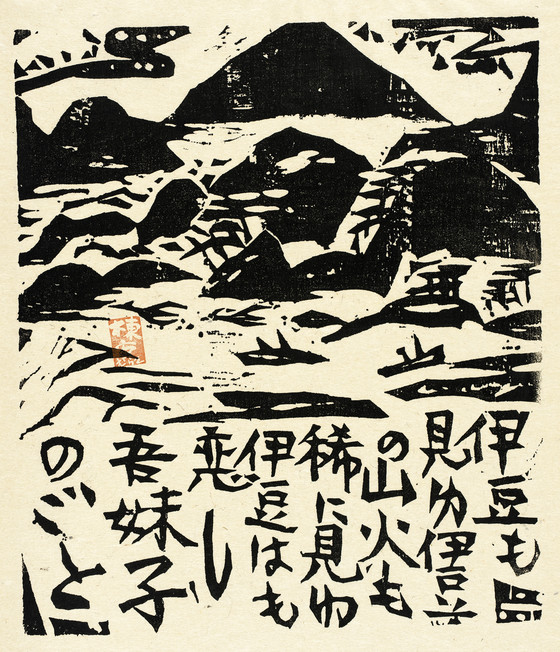 伊豆も
見ゆ伊豆
の山火も
稀に見ゆ
伊豆はも
恋し
吾妹子
のごと